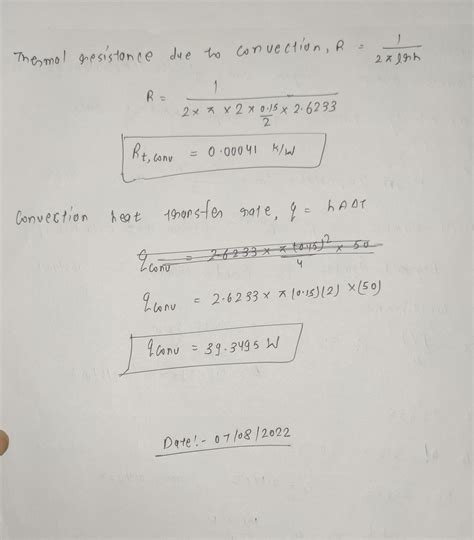 Thermal resistance due to convection, R = 1 / 2πlrh
R = 1 / 2 × π × 2 × 0.15/2 × 2.6233
Rt, conv = 0.00041 K/W
Convection heat transfer rate, q = hAΔT
qconv = 2.6233 × π (0.15)² / 4 × 50
qconv = 2.6233 × π (0.15)(2) × (50)
qconv = 39.3495 W
Date:- 07/08/2022